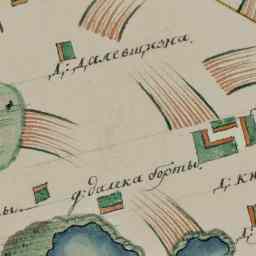 Д: Далевщизна.
ф: далека борты.
Д: Кн
ы.
Д: